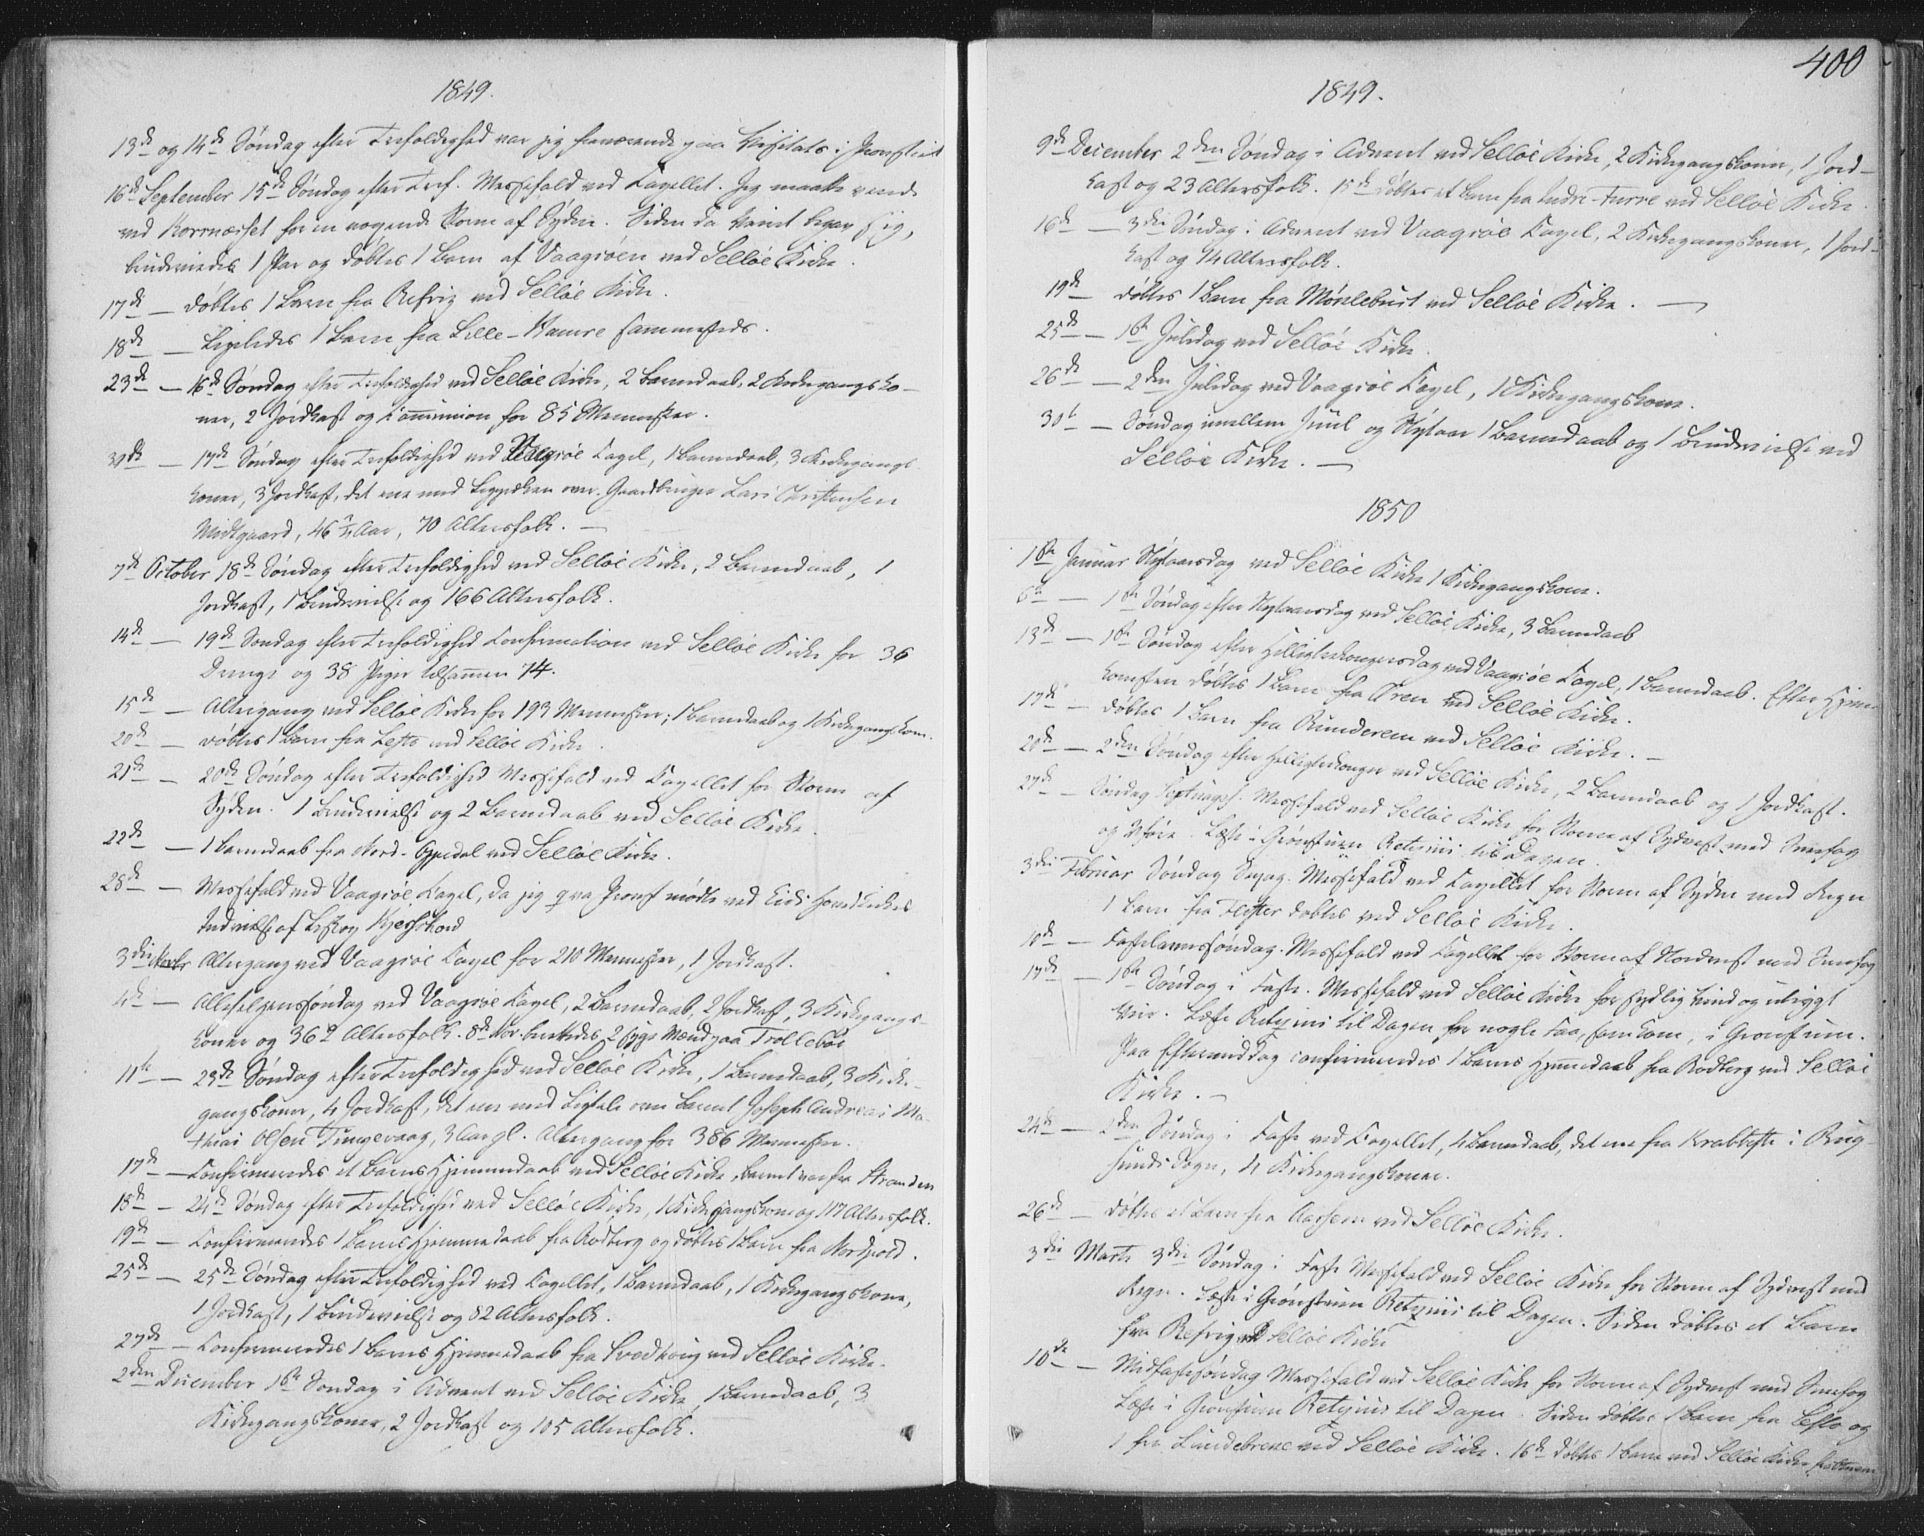 1849.
13de og 14de Søndag efter Trefoldighed var jeg fraværende paa Visitats i Provstiet
16de September 15de Søndag efter Tref. Messefald ved Capellet. Jeg maatte vende
ved Kornnæsset for en rygende Storm af Syden. Siden da Veiret begav sig,
brudeviedes 1 Par og døbtes 1 Barn af Vaagsöen ved Sellöe Kirke.
17de — døbtes 1 Barn fra Refvig ved Sellöe Kirke.
18de — Ligeledes 1 Barn fra Lille-Hamre sammesteds.
23de — 16de Søndag efter Trefoldighed ved Sellöe Kirke, 2 Barnedaab, 2 Kirkegangsko-
ner, 2 Jordkast og Communion for 85 Mennesker.
30de — 17de Søndag efter Trefoldighed ved Vaagsöe Capel, 1 Barnedaab, 3 Kirkegangs-
koner, 3 Jordkast, det ene med Liigprædiken over Gaardbruger Lars Christensen
Midtgaard, 46 Aar, 70 Altersfolk. —
7de October 18de Søndag efter Trefoldighed ved Sellöe Kirke, 2 Barnedaab, 1
Jordkast, 1 Brudevielse og 166 Altersfolk.
14de — 19de Søndag efter Trefoldighed Confirmation ved Sellöe Kirke for 36
Drenge og 38 Piger tilsammen 74.
15de — Altergang ved Sellöe Kirke for 193 Mennesker; 1 Barnedaab og 1 Kirkegangskone.
20de — døbtes 1 Barn fra Lefto ved Sellöe Kirke.
21de — 20de Søndag efter Trefoldighed Messefald ved Capellet for Storm af
Syden. 1 Brudevielse og 2 Barnedaab ved Sellöe Kirke.
22de — 1 Barnedaab fra Nord-Oppedal ved Sellöe Kirke.
28de — Messefald ved Vaagsöe Capel, da jeg qva Provst mødte ved Eids Hovedkirkes
Indvielse af Biskop Kjerschow
3die Novbr Altergang ved Vaagsöe Capel for 210 Mennesker, 1 Jordkast.
4de — Allehelgenssøndag ved Vaagsöe Capel, 2 Barnedaab, 2 Jordkast, 3 Kirkegangs-
koner og 369 Altersfolk. 8de Nov. berettedes 2 syge Mænd paa Trolleböe
11te — 23de Søndag efter Trefoldighed ved Sellöe Kirke, 1 Barnedaab, 3 Kirke-
gangskoner, 4 Jordkast, det ene med Ligtale over Barnet Joseph Andreas Ma-
thias Olsen Tungevaag, 3 Aar gl. Altergang for 386 Mennesker.
17de — Confirmeredes et Barns Hjemmedaab ved Sellöe Kirke, Barnet var fra Stranden
18de — 24de Søndag efter Trefoldighed ved Sellöe Kirke, 1 Kirkegangskone og 117 Altersfolk.
19de — Confirmeredes 1 Barns Hjemmedaab fra Rødberg og døbtes 1 Barn fra Nordpold.
25de — 25de Søndag efter Trefoldighed ved Capellet, 1 Barnedaab, 1 Kirkegangskone,
1 Jordkast, 1 Brudevielse og 82 Altersfolk.
27de — Confirmeredes 1 Barns Hjemmedaab fra ved Sellöe Kirke.
2den December 1ste Søndag i Advent ved Sellöe Kirke, 1 Barnedaab, 3
Kirkegangskoner, 2 Jordkast og 105 Altersfolk.
400
1849.
9de December 2den Søndag i Advent ved Sellöe Kirke, 2 Kirkegangskoner, 1 Jord-
kast og 23 Altersfolk. 15de døbtes et Barn fra Indre-Furre ved Sellöe Kirke.
16de — 3die Søndag i Advent ved Vaagsöe Capel, 2 Kirkegangskoner, 1 Jord-
kast og 74 Altersfolk.
19de døbtes 1 Barn fra Mönlebust ved Sellöe Kirke. —
25de — 1ste Juledag ved Sellöe Kirke.
26de — 2den Juledag ved Vaagsöe Capel, 1 Kirkegangskone.
30te — Søndag imellem Juul og Nytaar 1 Barnedaab og 1 Brudevielse ved
Sellöe Kirke. —
1850
1ste Januar Nytaarsdag ved Sellöe Kirke 1 Kirkegangskone.
6te — 1ste Søndag efter Nytaarsdag ved Sellöe Kirke, 3 Barnedaab
13de — 1ste Søndag efter Helligtrekongersdag ved Vaagsöe Capel, 1 Barnedaab. Efter Hjem-
komsten døbtes 1 Barn fra Ären ved Sellöe Kirke.
17de — døbtes 1 Barn fra Runderem ved Sellöe Kirke. —
20de — 2den Søndag efter Helligtrekonger ved Sellöe Kirke, 2 Barnedaab og 1 Jordkast.
27de — Søndag Septuages. Messefald ved Sellöe Kirke for Storm af Sydvest med Sneefog
og Uføre. Læste i Grønstuen Retzius til Dagen.
3die Februar Søndag Sexag. Messefald ved Capellet for Storm af Syden med Regn
1 Barn fra Flister døbtes ved Sellöe Kirke.
10de — Fastelavnssøndag. Messefald ved Capellet for Storm af Nordvest med Sneefog
17de — 1ste Søndag i Faste. Messefald ved Sellöe Kirke for sydlig Vind og utrygt
Veir. Læste Retzius til Dagen for nogle Faa, som kom, i Grønstuen.
Paa Eftermiddag confirmeredes 1 Barns Hjemmedaab fra Rødberg ved Sellöe
Kirke. —
24de — 2den Søndag i Faste ved Capellet, 4 Barnedaab, det ene fra Krabbeste i Rug-
sunds Sogn, 4 Kirkegangskoner.
26de — døbtes et Barn fra Aarsem ved Sellöe Kirke.
3die Marts 3die Søndag i Faste Messefald ved Sellöe Kirke for Storm af Sydvest med
Regn. Læste i Grønstuen Retzius til Dagen. Siden døbtes et Barn
fra Refvig ved Sellöe Kirke
10de — Midfastesøndag Messefald ved Sellöe Kirke for Storm af Sydvest med Sneefog
Læste i Grønstuen Retzius til Dagen. Siden døbtes 1 Barn fra Lefto og
1 fra Lundebrekke ved Sellöe Kirke. 16de døbtes 1 Barn ved Sellöe Kirke